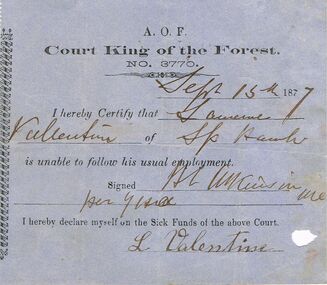 A. O. F.
Court King of the Forest.
NO. 3770.
Sept 15th 1877
I hereby Certify that
Vallentine of
is unable to follow his usual employment.
Signed
I hereby declare myself on the Sick Funds of the above Court.
L Valentine